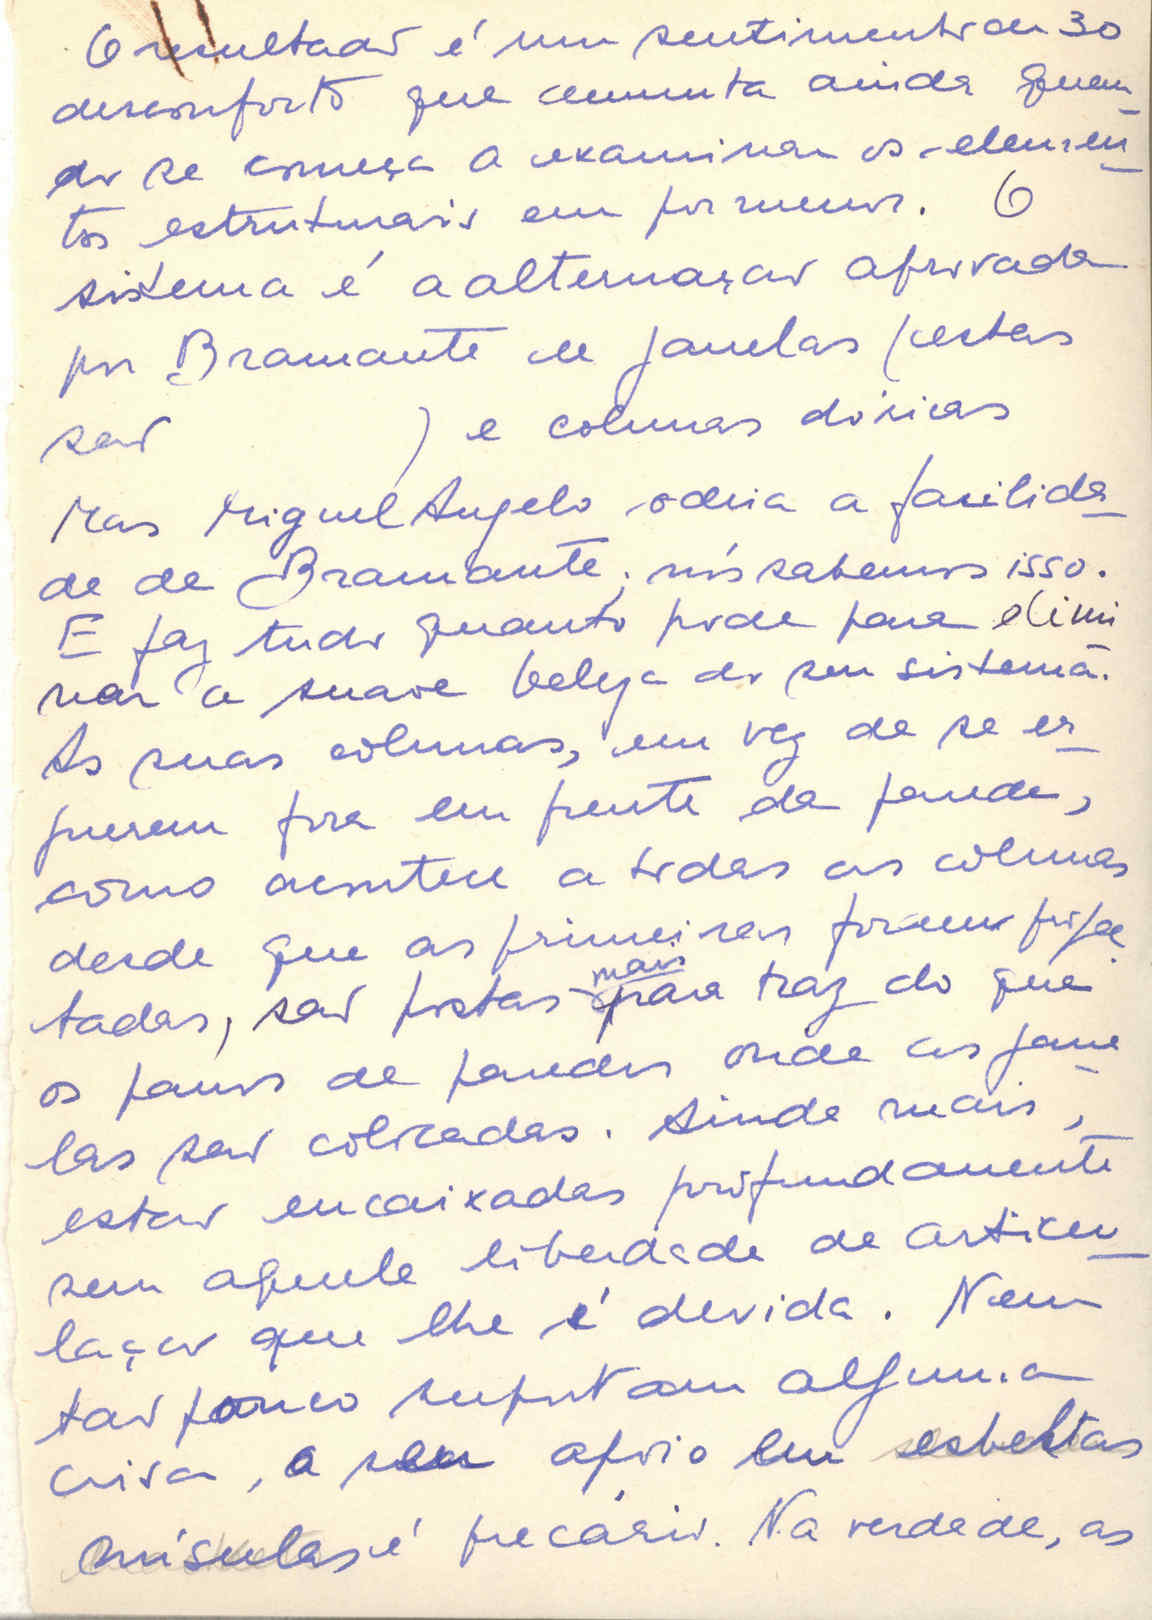 O resultado é um sentimento de 30
desconforto que aumenta ainda quan_
do se começa a examinar os elemen_
tos estruturais em pormenor. O
sistema é a alternação aprovada
por Bramante de janelas (estas
são ) e colunas dóricas
Mas Miguel Angelo odeia a facilida_
de de Bramante; nós sabemos isso.
E faz tudo quanto pode para elimi
nar a suave beleza do seu sistema.
As suas colunas, em vez de se er_
guerem fora em frente da parede,
como acontece a todas as colunas
desde que as primeiras foram proje_
tadas, são postas mais para traz do que
os panos de paredes onde as jane_
las são colocadas. Ainda mais,
estão encaixadas profundamente
sem aquela liberdade de articu_
lação que lhe é devida. Nem
tão pouco suportam alguma
coisa, o seu apoio em esbeltas
mísulas é precário. Na verdade, as